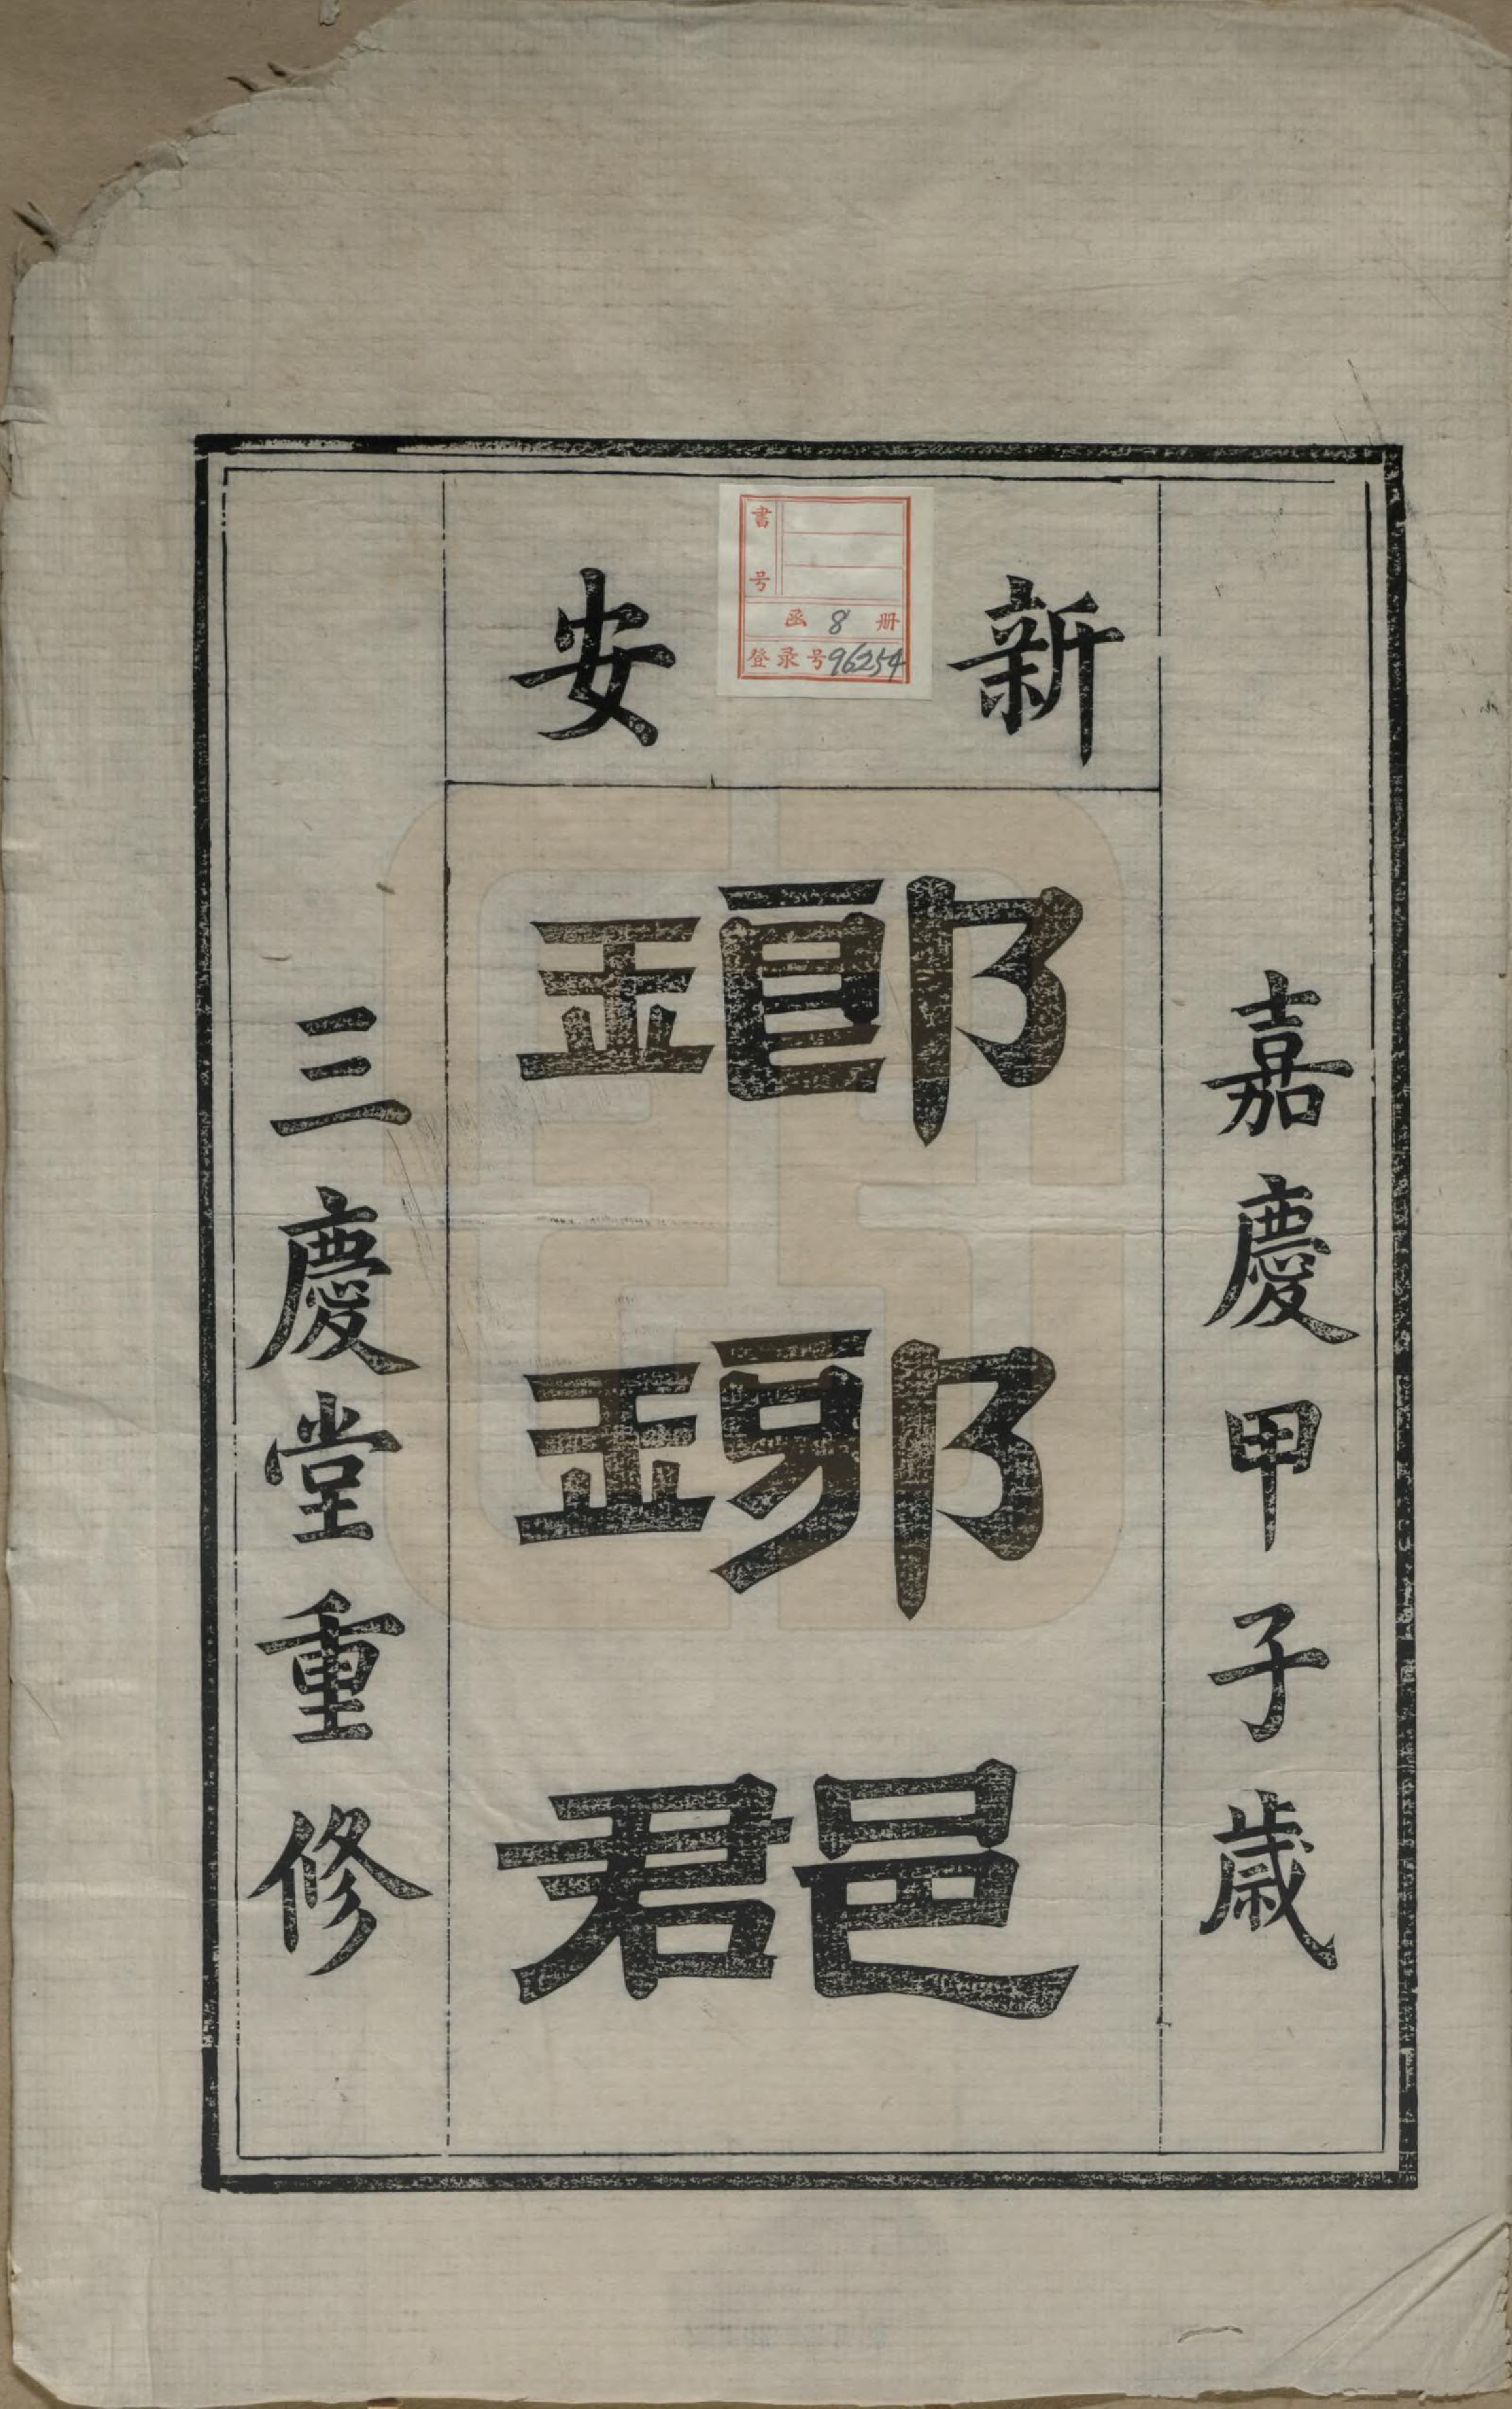 嘉慶甲子歳
新安
瑯琊郡
三慶堂重修
書号
函 8 册
登录号96254